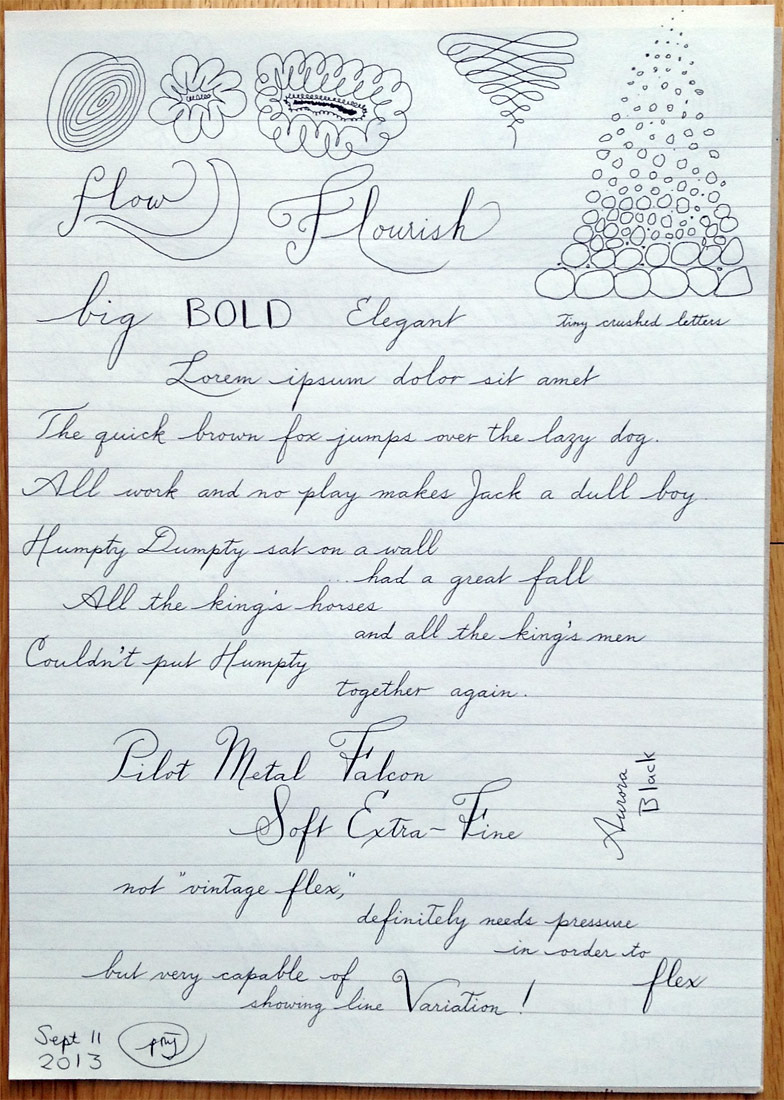 flow
Flourish
big BOLD Elegant
tiny crushed letters
Lorem ipsum dolor sit amet
The quick brown fox jumps over the lazy dog.
All work and no play makes Jack a dull boy.
Humpty Dumpty sat on a wall
...had a great fall
All the king's horses
and all the king's men
Couldn't put Humpty
together again.
Pilot Metal Falcon
Soft Extra-Fine
Aurora
Black
not "vintage flex,"
definitely needs pressure
in order to
flex
but very capable of
showing line Variation!
Sept 11
2013